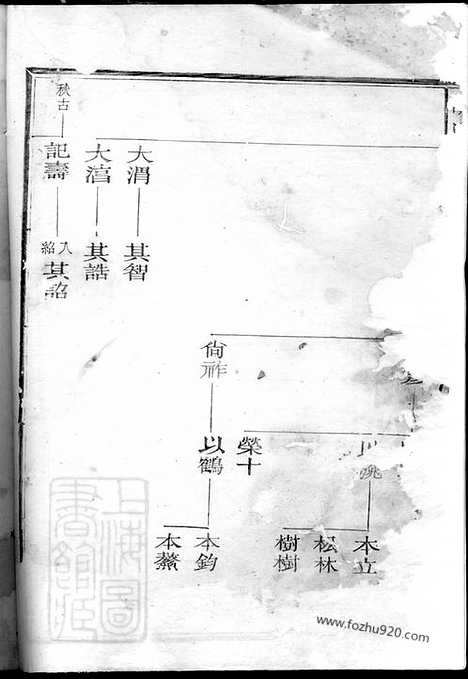 大渭
其智
大湻
其誥
秋古
記壽
入紹
其詔
尙祚
榮十
以鶴
本立
松林
樹樹
本鈞
本鰲
上海圖書館藏
www.fozhu920.com